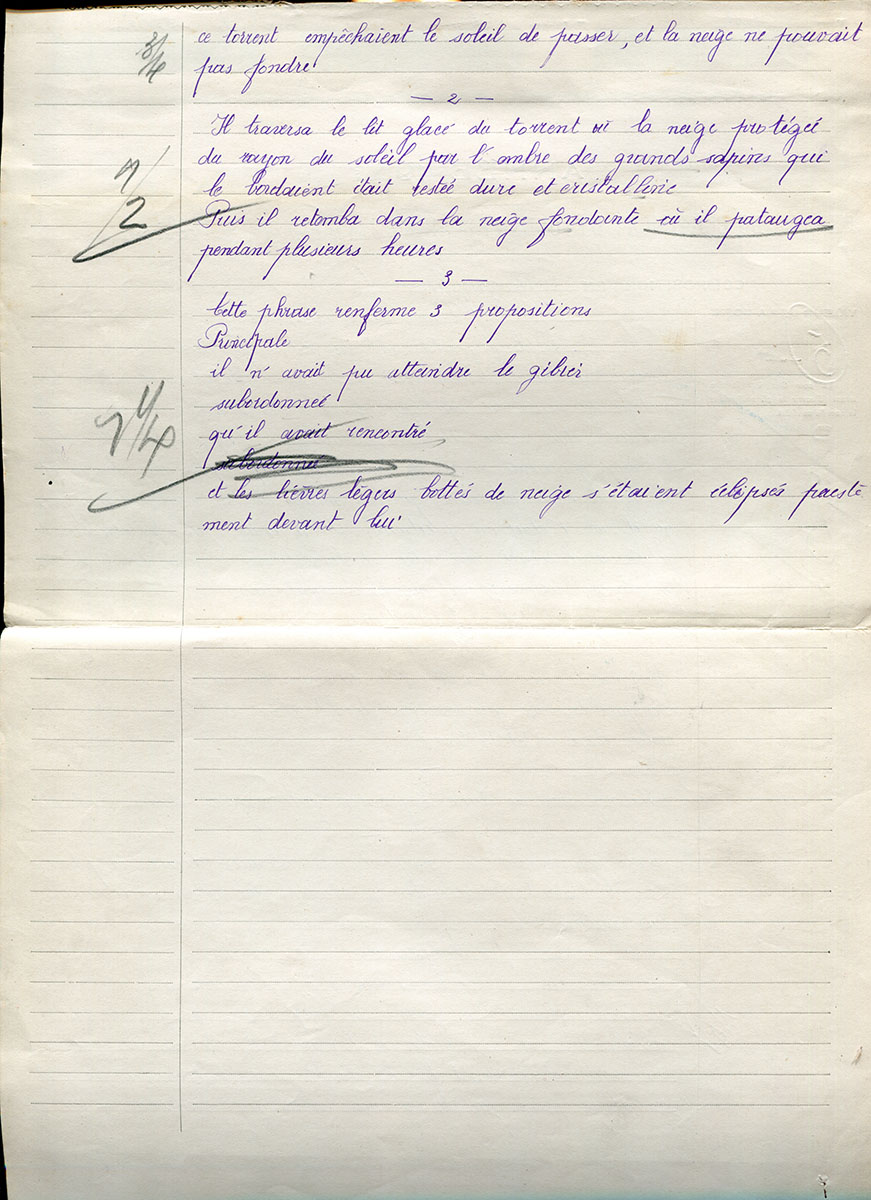 3/4
ce torrent empêchaient le soleil de passer, et la neige ne pouvait
pas fondre
— 2 —
Il traversa le lit glacé du torrent où la neige protégée
du rayon du soleil par l'ombre des grands sapins qui
le bordaient était restée dure et cristalline
1/2
Puis il retomba dans la neige fondante où il pataugea
pendant plusieurs heures
— 3 —
Cette phrase renferme 3 propositions
Principale
il n'avait pu atteindre le gibier
subordonneé
qu'il avait rencontré
subordonnée
et les lièvres légers bottés de neige s'étaient éclipsés preste
ment devant lui